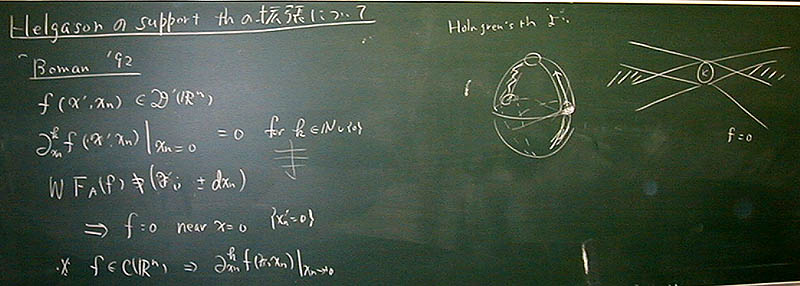 Helgason の support th の拡張について
Boman '92
f(x', xn) ∈ 𝒟'(ℝⁿ)
∂ₓₙᵏ f(x', xn)|xn=0 = 0 for k ∈ ℕ∪{0}
WF_A(f) ∌ (x', ± dxn)
⇒ f=0 near x=0 {xn=0}
※ f∈C(ℝⁿ) ⇒ ∂ₓₙᵏ f(x', xn)|xn→0
Holmgren's th
K
f=0